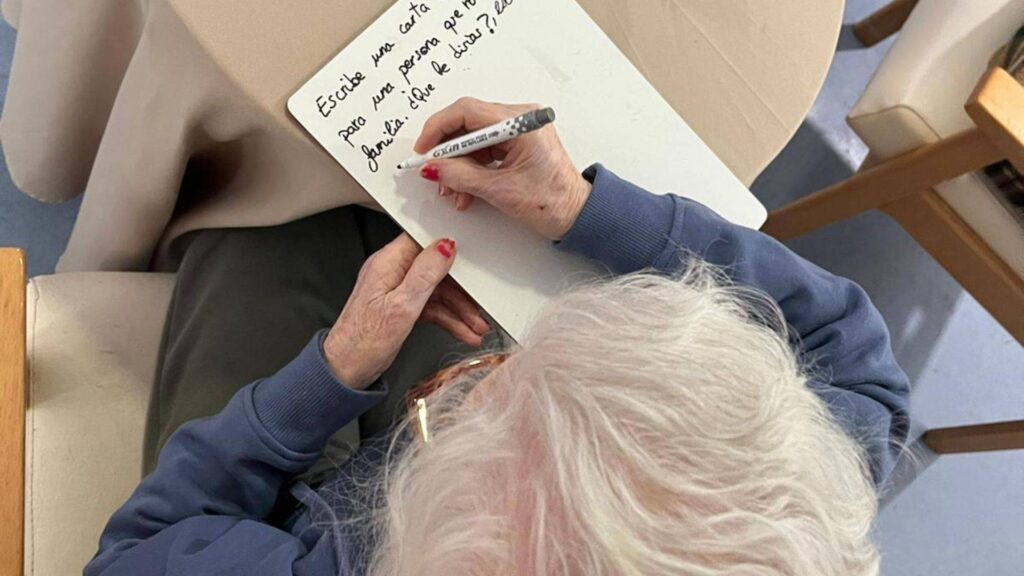 Escribe una carta
para una persona que no
familia. ¿Que le dirias?,